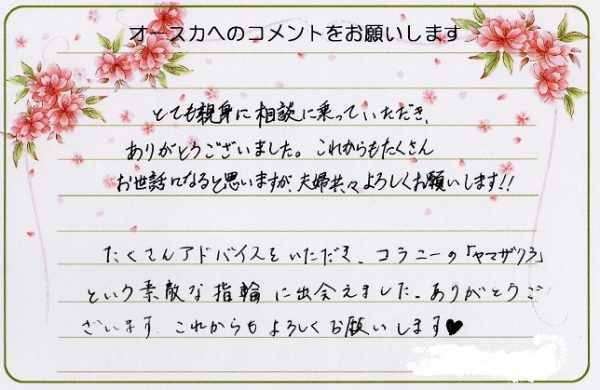 オースカへのコメントをお願いします
とても親身に相談に乗っていただき、
ありがとうございました。これからもたくさん
お世話になると思いますが、夫婦共々よろしくお願いします!!
たくさんアドバイスをいただき、コラニーの「ヤマザクラ」
という素敵な指輪に出会えました。ありがとうご
ざいます。これからもよろしくお願いします♥